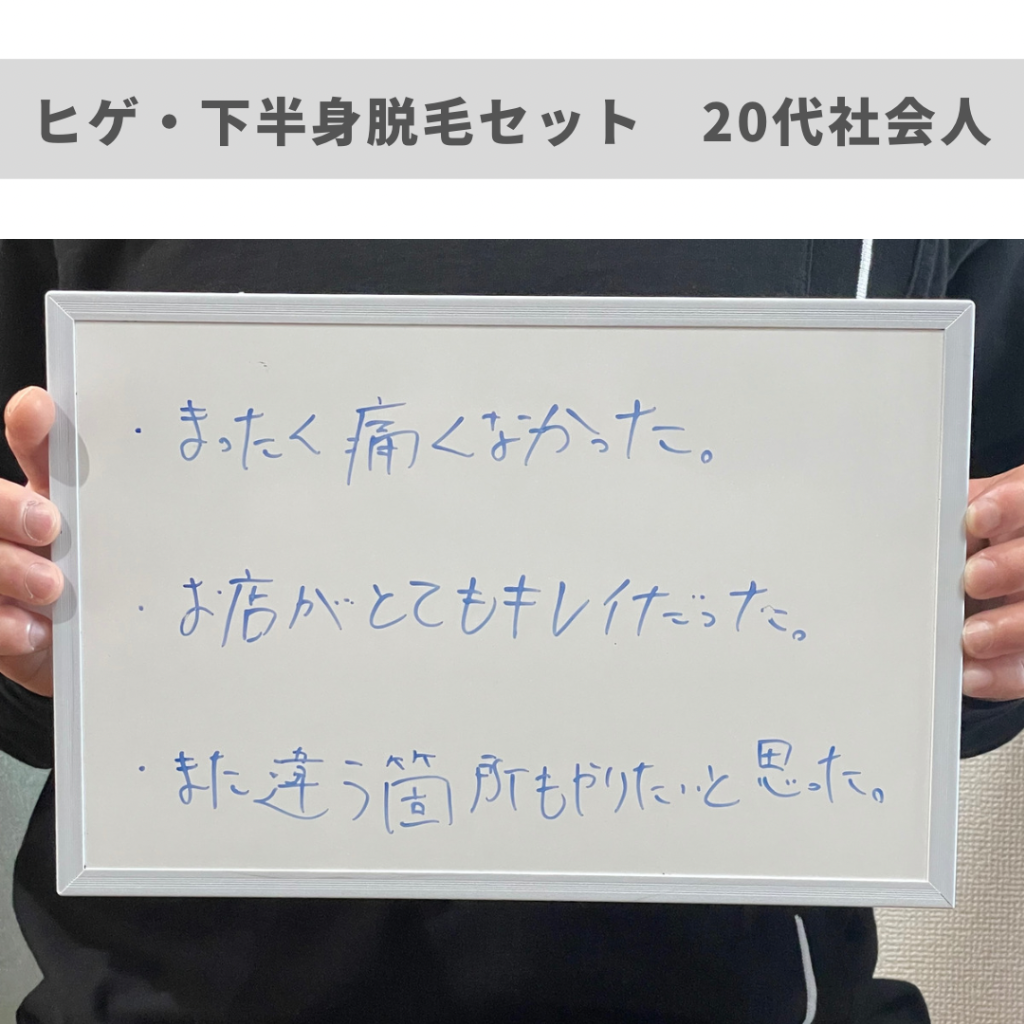 ヒゲ・下半身脱毛セット　20代社会人
・まったく痛くなかった。
・お店がとてもキレイだった。
・また違う箇所もやりたいと思った。